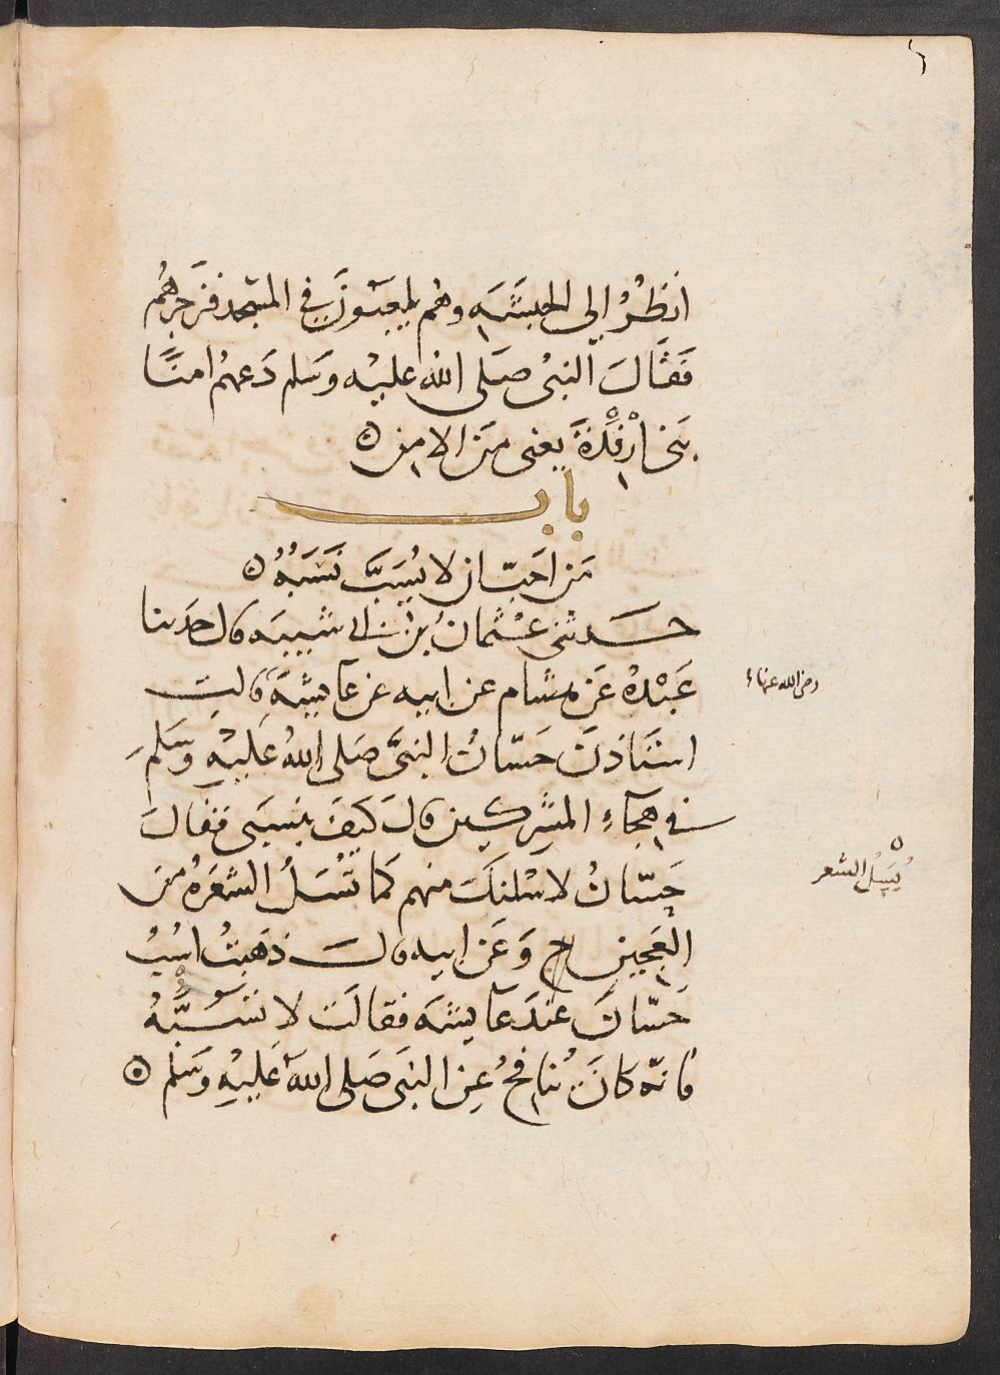 انظُرُ الي الحبشَه وهُم يلعَبُونَ في المسجد فزَجرهُم
فَقَالَ النبيُ صَلى الله عليْه وسَلم دَعهمُ امنًا
بَني ارْفِدَةَ يعني مِنَ الامنِ ه
باب
مَن احَبّ ان لا يُسَبَّ نَسَبُهُ ه
حــدثني عُثمانُ بنُ ابي شيبَه قال حدثنا
عَبْدةُ عَن هشام عن ابيه عن عايشَةَ قالت
استَاذنَ حَسّانُ النبيَّ صَلى اللهُ عَليْهِ وَسَلمَ
في هجآءِ المشركين قالَ كيَفَ بنسَبي فقالَ
حَسّانُ لاسُلنكَ منهم كَما تُسَلُ الشعَرهُ منَ
العَجينِ ح وَعَن ابيه قالَ ذهَبتُ اسُبُ
حَسّانَ عندَ عايشَه فقالَت لا تَسُبّهُ
فانّه كانَ يُنافحُ عن النبَي صَلى اللهُ عَليْهِ وَسَلم ه
رضى الله عنها
يُسَلُ الشعر